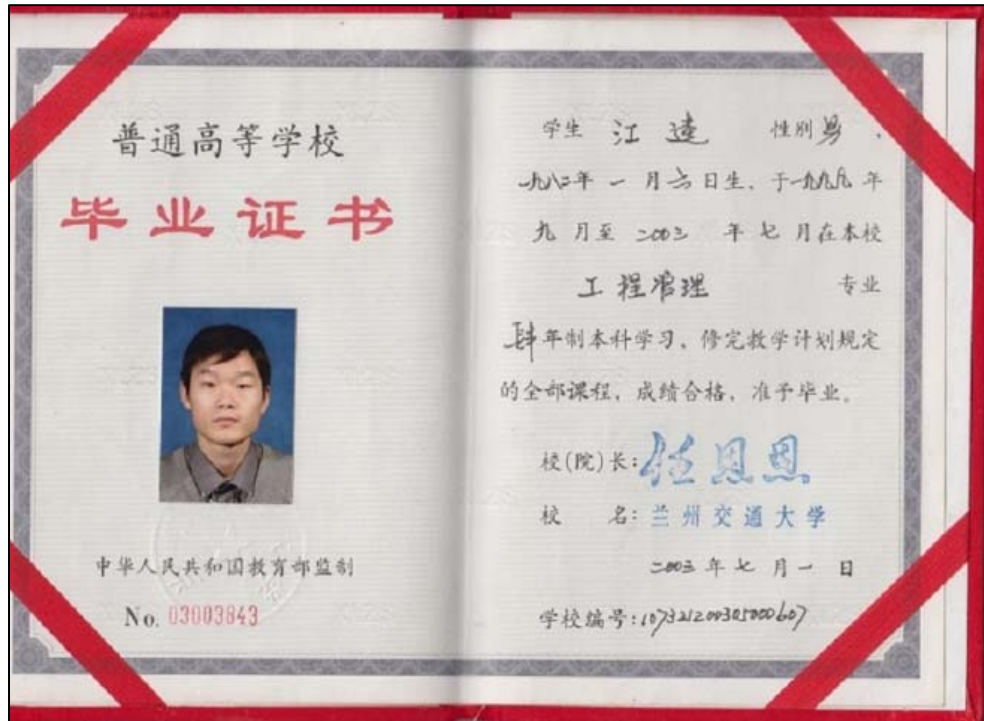 普通高等学校
毕业证书
中华人民共和国教育部监制
No. 03003843
学生 江逵 性别 男，
一九八二年一月六日生，于一九九九年
九月至二〇〇三年七月在本校
工程管理 专业
肆年制本科学习，修完教学计划规定
的全部课程，成绩合格，准予毕业。
校(院)长：任恩恩
校 名：兰州交通大学
二〇〇三年七月一日
学校编号：107321200305000607